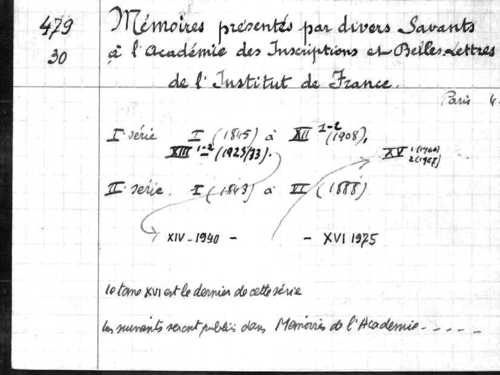 479
30
Mémoires présentés par divers Savants
à l'Académie des Inscriptions et Belles-Lettres
de l'Institut de France.
Paris 4
I série I (1845) à XII 1-2 (1908).
XIII 1-2 (1923/33).
XV
II série. I (1843) à VI (1888)
XIV - 1940 - - XVI 1975
le tome XVI est le dernier de cette série
les suivants seront publiés dans Mémoires de l'Académie - - - - -